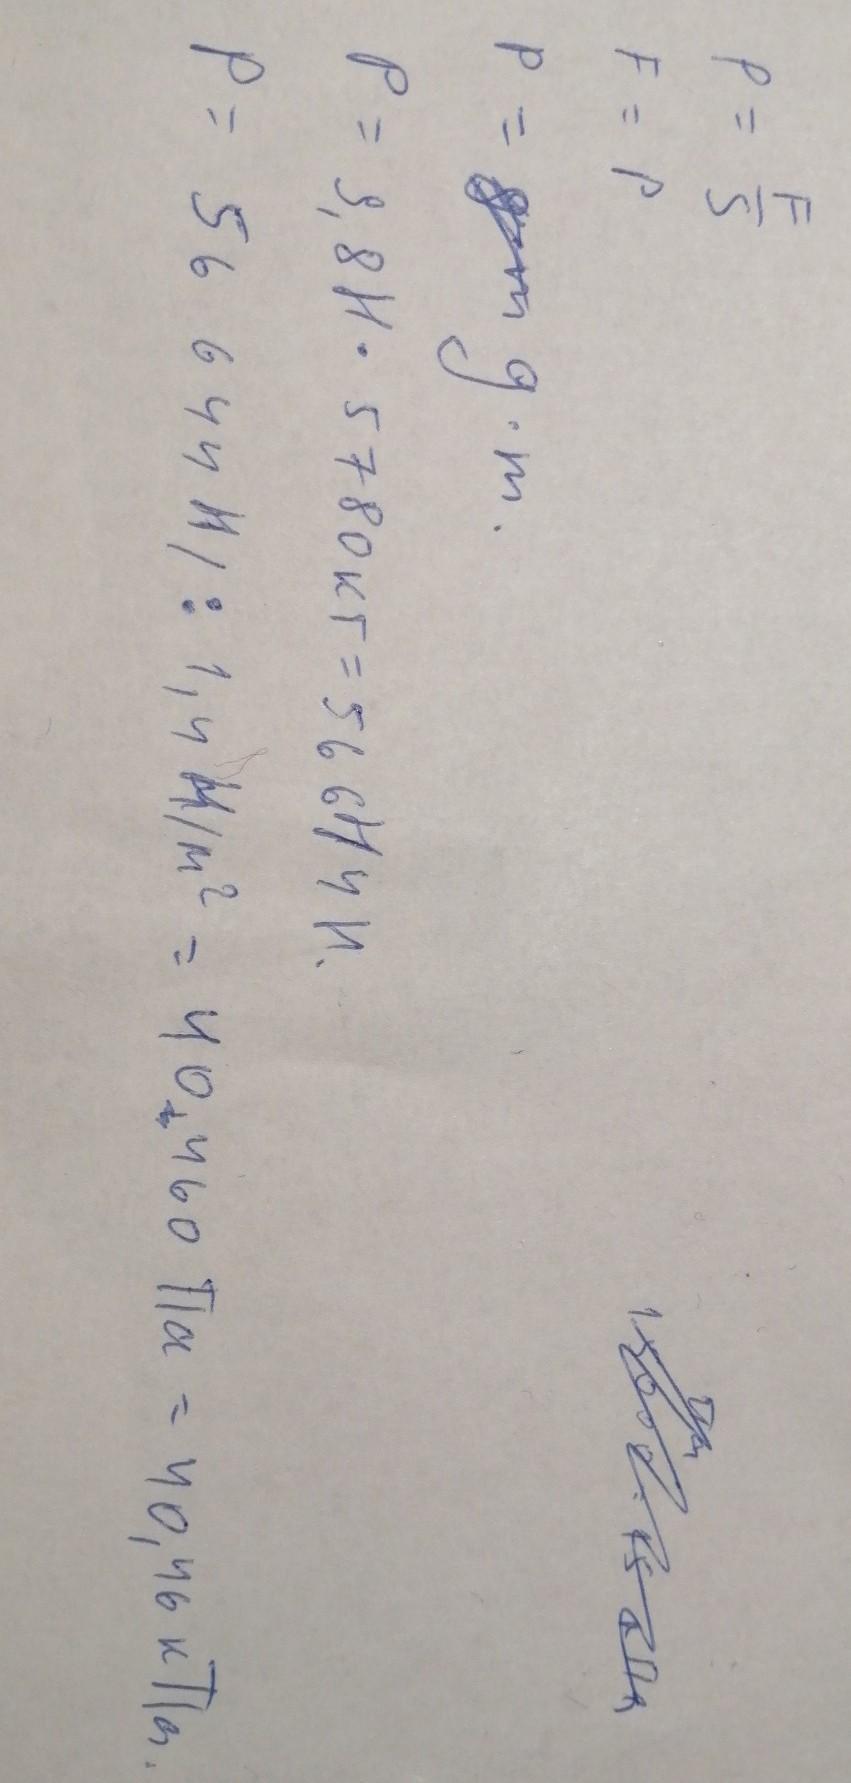 P = F/S
F = P
P = g·m.
P = 9,8Н · 5780кг = 56644Н.
P = 56 644Н/ : 1,4Н/м² = 40,460 Па = 40,46 кПа.